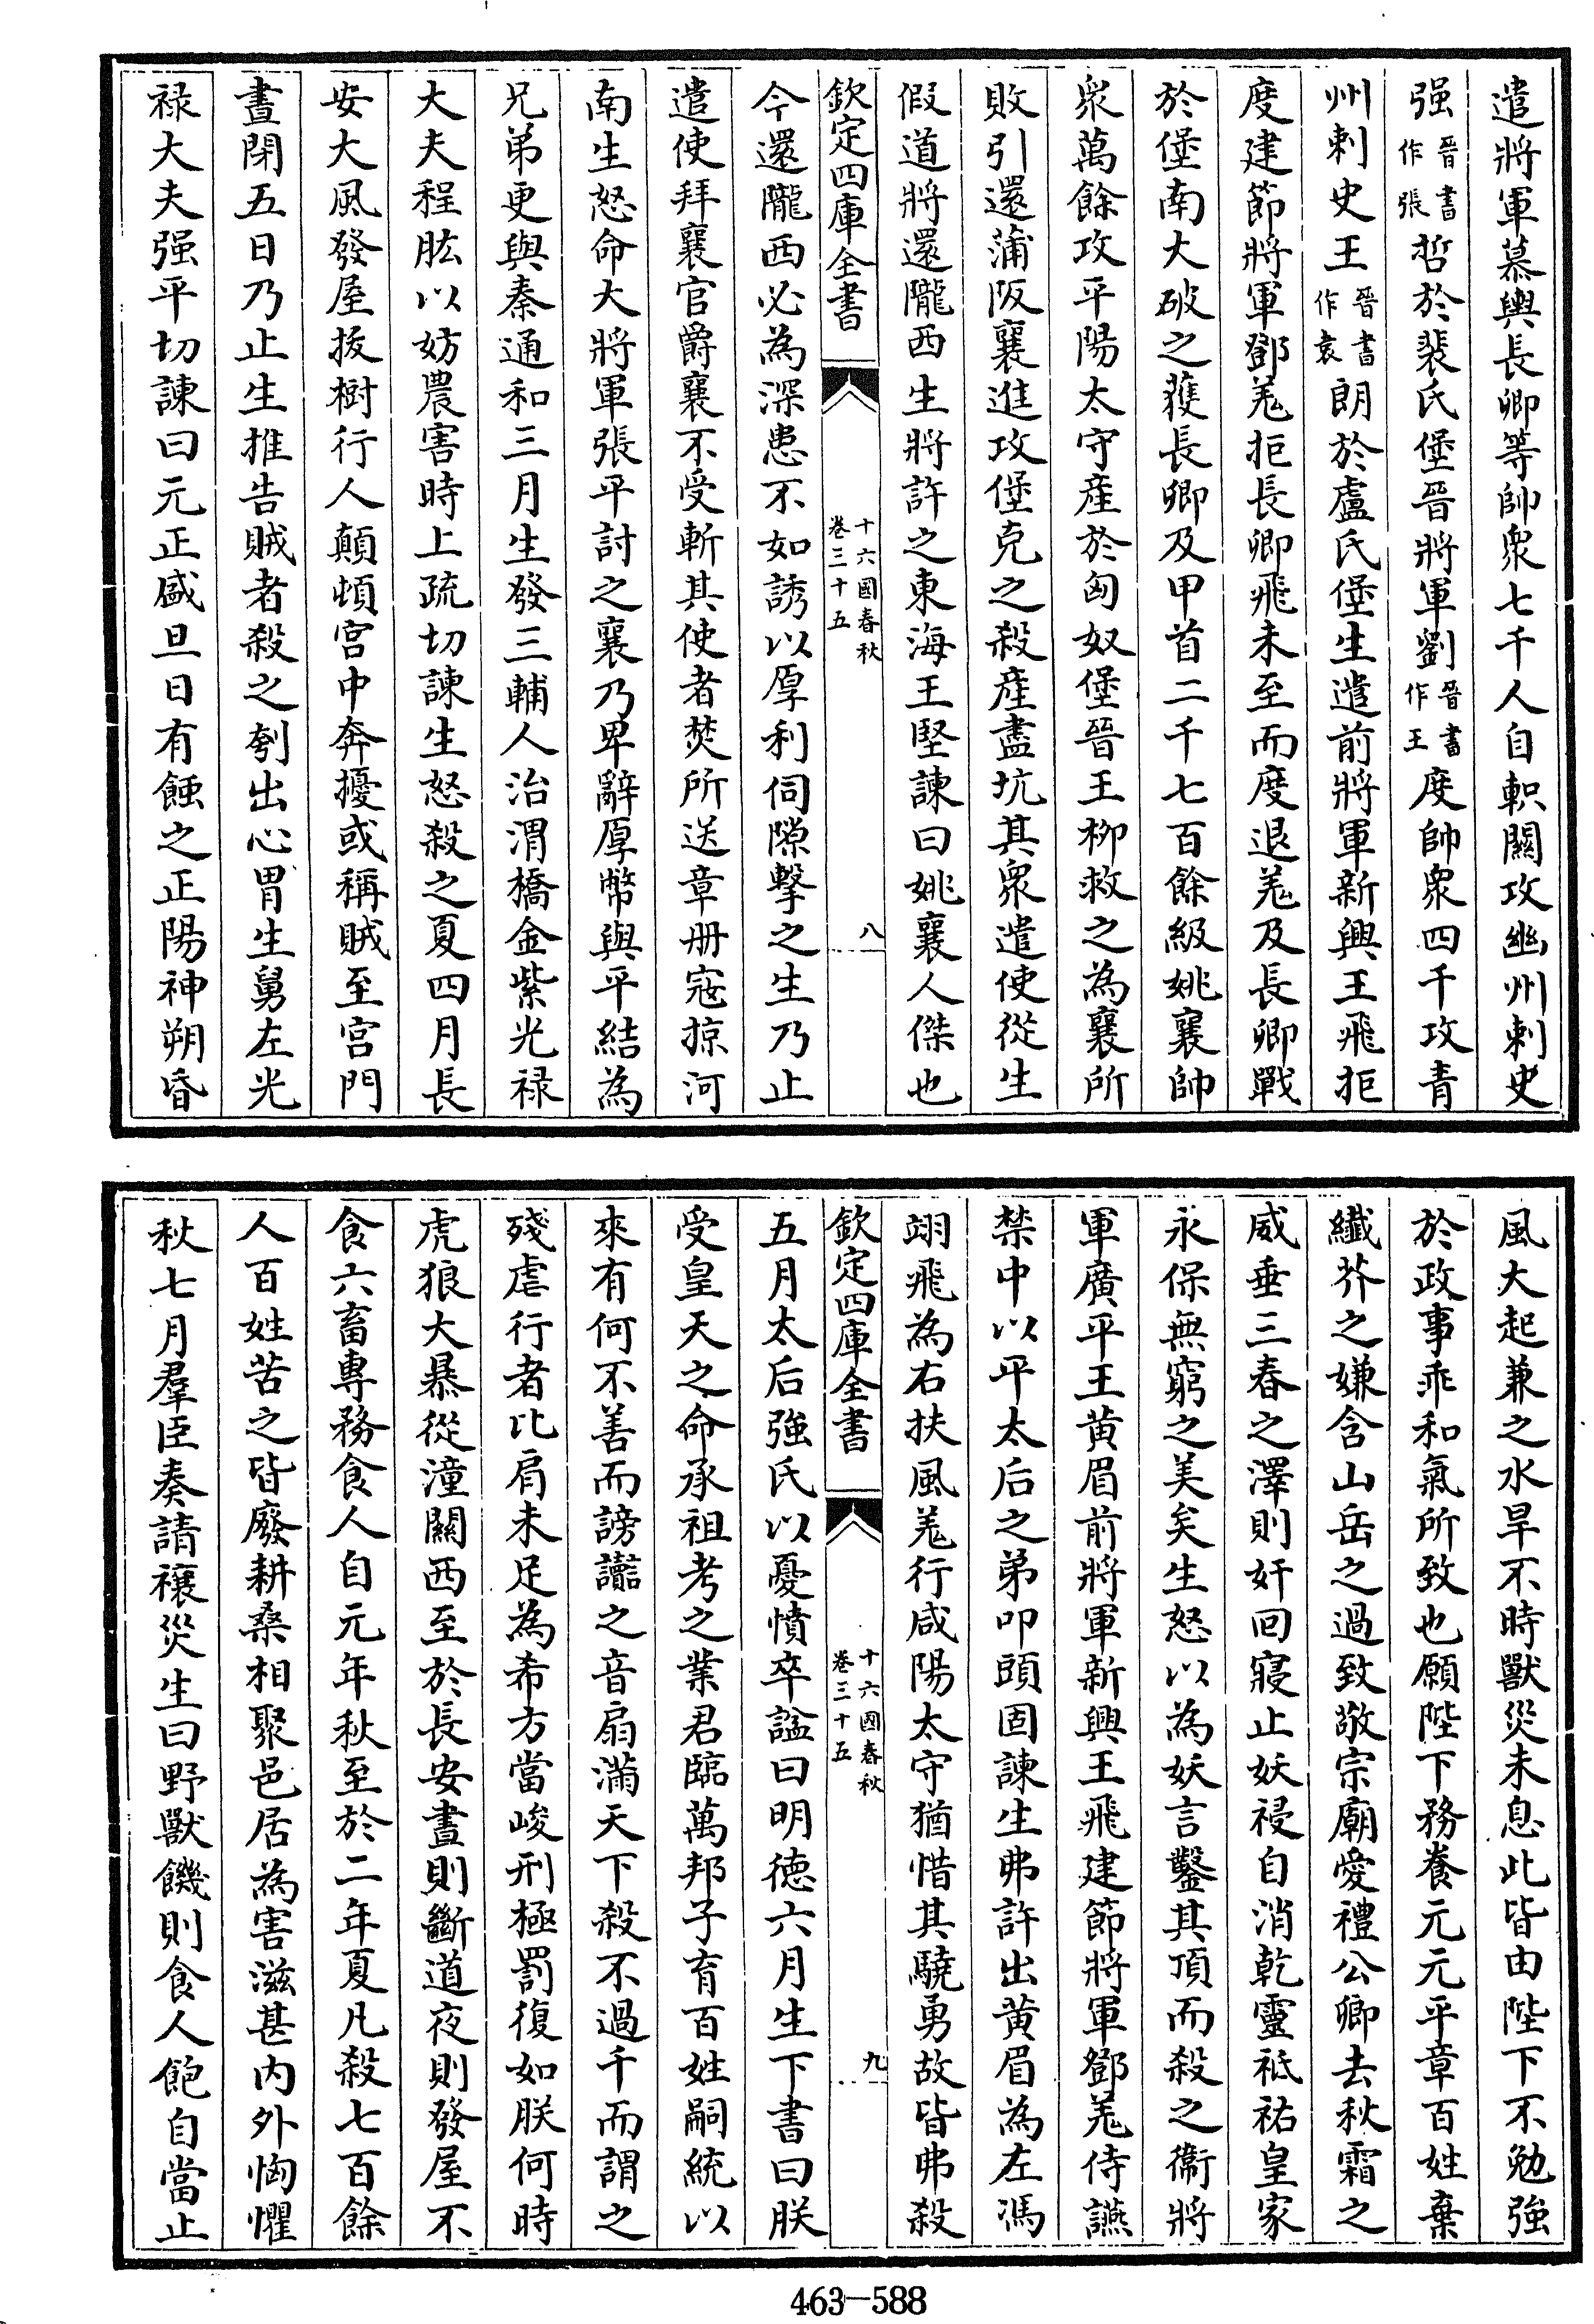 遣將軍慕輿長卿等帥衆七千人自軹關攻幽州刺史
强晉書作張哲於裴氏堡晉將軍劉晉書作王度帥衆四千攻青
州刺史王晉書作袁朗於盧氏堡生遣前將軍新興王飛拒
度建節將軍鄧羌拒長卿飛未至而度退羌及長卿戰
於堡南大破之獲長卿及甲首二千七百餘級姚襄帥
衆萬餘攻平陽太守産於匈奴堡晉王栁救之為襄所
敗引還蒲阪襄進攻堡克之殺産盡坑其衆遣使從生
假道將還隴西生將許之東海王堅諫曰姚襄人傑也
欽定四庫全書
十六國春秋
卷三十五
八
今還隴西必為深患不如誘以厚利伺隙擊之生乃止
遣使拜襄官爵襄不受斬其使者焚所送章册寇掠河
南生怒命大將軍張平討之襄乃卑辭厚幣與平結為
兄弟更與秦通和三月生發三輔人治渭橋金紫光禄
大夫程肱以妨農害時上疏切諫生怒殺之夏四月長
安大風發屋拔樹行人顛頓宮中奔擾或稱賊至宮門
晝閉五日乃止生推告賊者殺之刳出心胃生舅左光
禄大夫强平切諫曰元正盛旦日有蝕之正陽神朔昏
風大起兼之水旱不時獸災未息此皆由陛下不勉強
於政事乖和氣所致也願陛下務養元元平章百姓棄
纎芥之嫌含山岳之過致敬宗廟愛禮公卿去秋霜之
威垂三春之澤則奸回寢止妖祲自消乾靈祗祐皇家
永保無窮之美矣生怒以為妖言鑿其頂而殺之衞將
軍廣平王黄眉前將軍新興王飛建節將軍鄧羌侍讌
禁中以平太后之弟叩頭固諫生弗許出黄眉為左馮
翊飛為右扶風羌行咸陽太守猶惜其驍勇故皆弗殺
欽定四庫全書
十六國春秋
卷三十五
九
五月太后強氏以憂憤卒諡曰明徳六月生下書曰朕
受皇天之命承祖考之業君臨萬邦子育百姓嗣統以
來有何不善而謗讟之音扇滿天下殺不過千而謂之
殘虐行者比肩未足為希方當峻刑極罰復如朕何時
虎狼大暴從潼關西至於長安晝則斷道夜則發屋不
食六畜專務食人自元年秋至於二年夏凡殺七百餘
人百姓苦之皆廢耕桑相聚邑居為害滋甚内外恟懼
秋七月羣臣奏請禳災生曰野獸饑則食人飽自當止
463-588